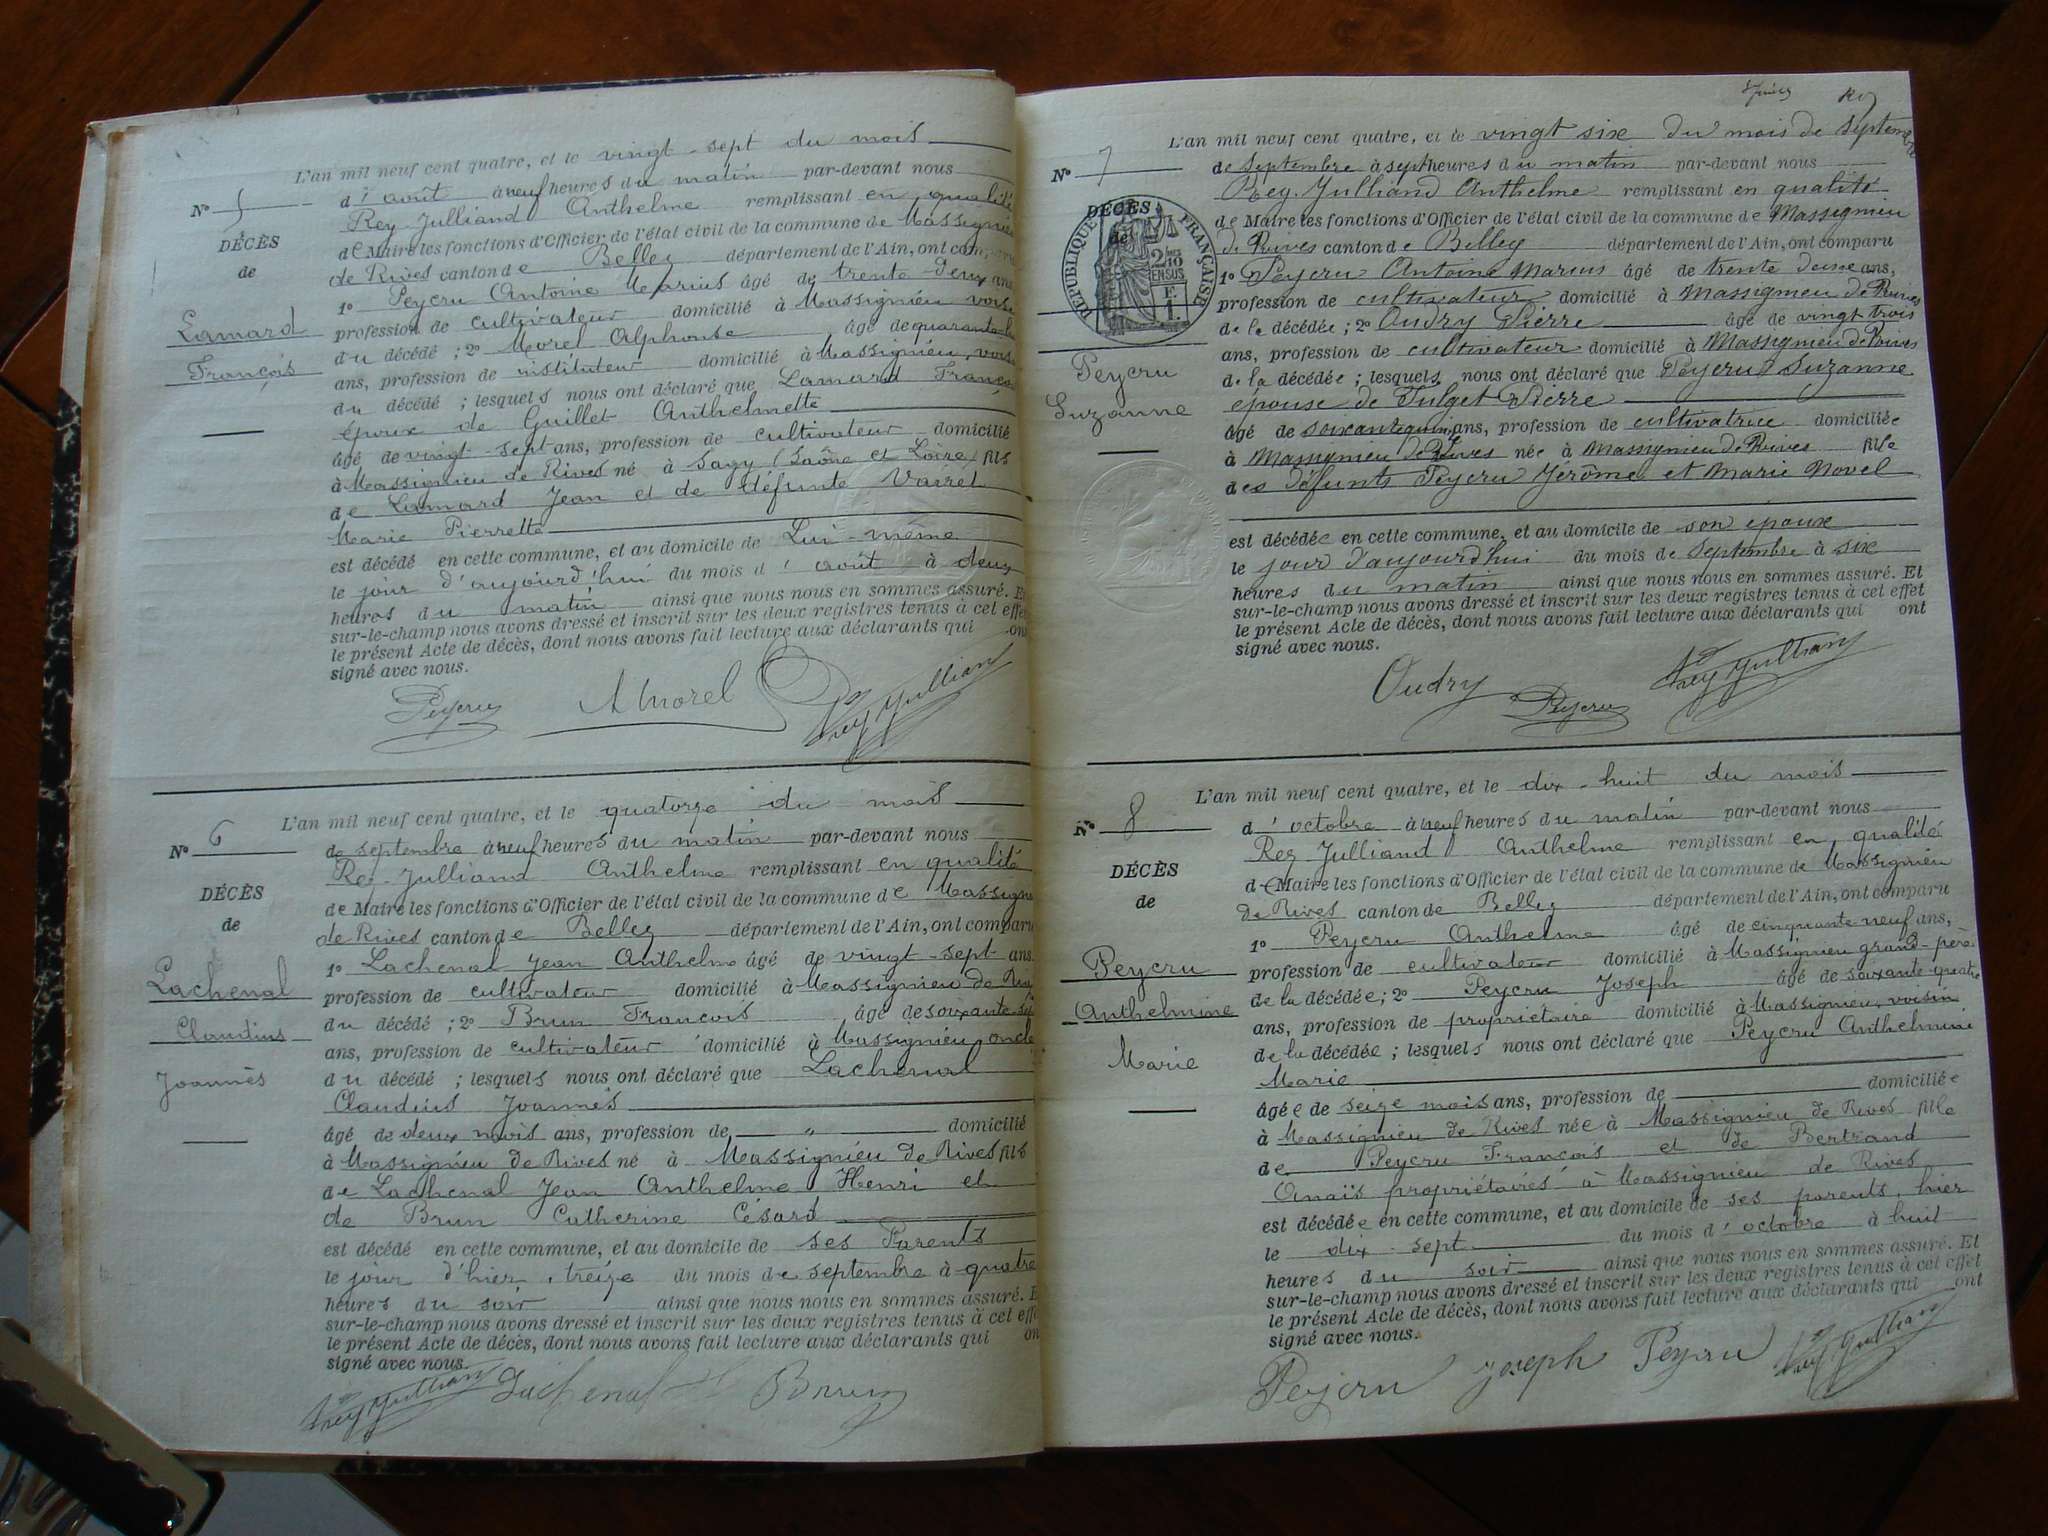 L'an mil neuf cent quatre, et le vingt-sept du mois
d'août à neuf heures du matin par-devant nous
N° 5
Rey-Julliand Anthelme remplissant en qualité
DÉCÈS
de
Lamard
François
de Maire les fonctions d'Officier de l'état civil de la commune de Massignieu
de Rives canton de Belley département de l'Ain, ont comparu
1° Peycru Antoine Marius âgé de trente-deux ans
profession de cultivateur domicilié à Massignieu voisin
du décédé ; 2° Morel Alphonse âgé de quarante
ans, profession de instituteur domicilié à Massignieu, voisin
du décédé ; lesquels nous ont déclaré que Lamard François
époux de Guillet Anthelmette
âgé de vingt-sept ans, profession de cultivateur domicilié
à Massignieu de Rives né à Sagy (Saône et Loire) fils
de Lamard Jean et de défunte Vairet
Marie Pierrette
est décédé en cette commune, et au domicile de Lui-même
le jour d'aujourd'hui du mois d'août à deux
heures du matin ainsi que nous nous en sommes assuré. Et
sur-le-champ nous avons dressé et inscrit sur les deux registres tenus à cet effet
le présent Acte de décès, dont nous avons fait lecture aux déclarants qui ont
signé avec nous.
Peycru A Morel Rey Julliand
L'an mil neuf cent quatre, et le quatorze du mois
N° 6
DÉCÈS
de
Lachenal
Claudius
Joannès
de septembre à neuf heures du matin par-devant nous
Rey-Julliand Anthelme remplissant en qualité
de Maire les fonctions d'Officier de l'état civil de la commune de Massignieu
de Rives canton de Belley département de l'Ain, ont comparu
1° Lachenal Jean Anthelme âgé de vingt-sept ans
profession de cultivateur domicilié à Massignieu de Rives
du décédé ; 2° Brun François âgé de soixante-sept
ans, profession de cultivateur domicilié à Massignieu oncle
du décédé ; lesquels nous ont déclaré que Lachenal
Claudius Joannès
âgé de deux mois ans, profession de " domicilié
à Massignieu de Rives né à Massignieu de Rives fils
de Lachenal Jean Anthelme Henri et
de Brun Catherine Césard
est décédé en cette commune, et au domicile de ses Parents
le jour d'hier, treize du mois de septembre à quatre
heures du soir ainsi que nous nous en sommes assuré. Et
sur-le-champ nous avons dressé et inscrit sur les deux registres tenus à cet effet
le présent Acte de décès, dont nous avons fait lecture aux déclarants qui ont
signé avec nous.
Rey Julliand Lachenal Brun
L'an mil neuf cent quatre, et le vingt six du mois de septembre
N° 7
DÉCÈS
de
RÉPUBLIQUE FRANÇAISE
2/10
EN SUS
F.
1.
Peycru
Suzanne
de septembre à sept heures du matin par-devant nous
Rey-Julliand Anthelme remplissant en qualité
de Maire les fonctions d'Officier de l'état civil de la commune de Massignieu
de Rives canton de Belley département de l'Ain, ont comparu
1° Peycru Antoine Marius âgé de trente deux ans,
profession de cultivateur domicilié à Massignieu de Rives
de la décédée ; 2° Oudry Pierre âgé de vingt trois
ans, profession de cultivateur domicilié à Massignieu de Rives
de la décédée ; lesquels nous ont déclaré que Peycru Suzanne
épouse de Fulget Pierre
âgé de soixante quinze ans, profession de cultivatrice domiciliée
à Massignieu de Rives née à Massignieu de Rives fille
des défunts Peycru Jérôme et Marie Novel
est décédée en cette commune, et au domicile de son époux
le jour d'aujourd'hui du mois de septembre à six
heures du matin ainsi que nous nous en sommes assuré. Et
sur-le-champ nous avons dressé et inscrit sur les deux registres tenus à cet effet
le présent Acte de décès, dont nous avons fait lecture aux déclarants qui ont
signé avec nous.
Oudry Peycru Rey Julliand
L'an mil neuf cent quatre, et le dix-huit du mois
N° 8
DÉCÈS
de
Peycru
Anthelmine
Marie
d'octobre à neuf heures du matin par-devant nous
Rey-Julliand Anthelme remplissant en qualité
de Maire les fonctions d'Officier de l'état civil de la commune de Massignieu
de Rives canton de Belley département de l'Ain, ont comparu
1° Peycru Anthelme âgé de cinquante-neuf ans,
profession de cultivateur domicilié à Massignieu grand-père
de la décédée ; 2° Peycru Joseph âgé de soixante-quatre
ans, profession de propriétaire domicilié à Massignieu, voisin
de la décédée ; lesquels nous ont déclaré que Peycru Anthelmine
Marie
âgée de seize mois ans, profession de domiciliée
à Massignieu de Rives née à Massignieu de Rives fille
de Peycru François et de Bertrand
Anaïs propriétaires à Massignieu de Rives
est décédée en cette commune, et au domicile de ses parents, hier
le dix-sept du mois d'octobre à huit
heures du soir ainsi que nous nous en sommes assuré. Et
sur-le-champ nous avons dressé et inscrit sur les deux registres tenus à cet effet
le présent Acte de décès, dont nous avons fait lecture aux déclarants qui ont
signé avec nous.
Peycru Joseph Peycru Rey Julliand